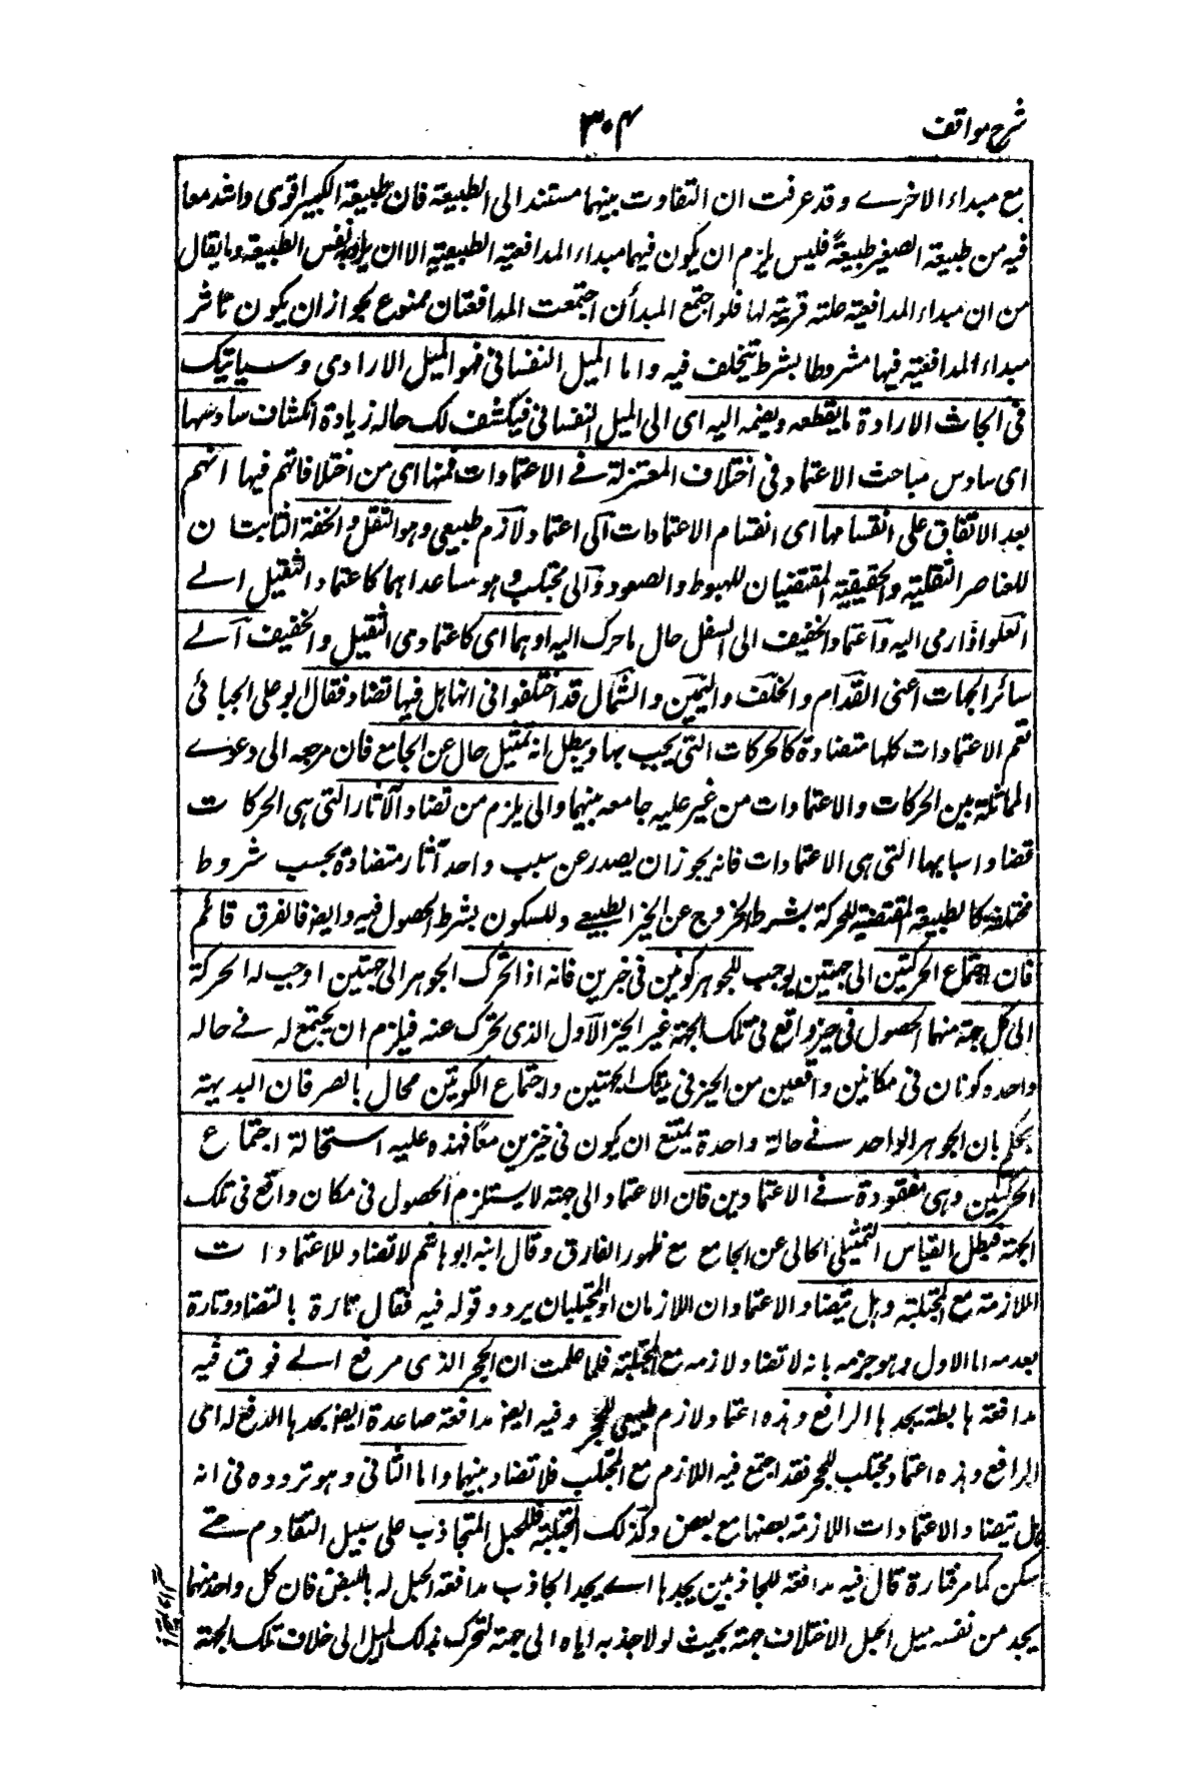 شرح مواقف
۳۰۴
مع مبداء الاخرے وقد عرفت ان التفاوت بينهما مستند الى الطبيعة فان طبيعة الكبير اقوى واشد معا
فيه من طبيعة الصغير طبيعةً فليس يلزم ان يكون فيهما مبداء المدافعية الطبيعية الا ان يراد به نفس الطبيعة وما يقال
من ان مبداء المدافعية علته قريبة لها فلو اجتمع المبدأن اجتمعت المدافعتان ممنوع بجواز ان يكون تاثر
مبداء المدافعية فيها مشروطا بشرط يتخلف فيه واما الميل النفسانى فهو الميل الارادى وسياتيك
فى ابحاث الارادة ما يقطعه ويضمه اليه اى الى الميل النفسانى فيكشف لك حاله زيادة انكشاف سادسها
اى سادس مباحث الاعتماد فى اختلاف المعتزلة فے الاعتمادات فمنها اى من اختلافاتهم فيها انهم
بعد الاتفاق على انقسامها اى انقسام الاعتمادات الى اعتماد لازم طبيعى وهو الثقل والخفة الثابتان
للعناصر الثقلية والخفيفية المقتضيان للهبوط والصعود والى مجتلب وهو ما عداهما كاعتماد الثقيل الے
العلو اذا رمى اليه واعتماد الخفيف الى السفل حال ما حرك اليه اوهما اى كاعتمادى الثقيل والخفيف الے
سائر الجهات اعنى القدام والخلف واليمين والشمال قد اختلفوا فى انها هل فيها تضاد فقال ابو على الجبائى
نعم الاعتمادات كلها متضادة كالحركات التى يجب بها ويبطل انه تمثيل حال عن الجامع فان مرجعه الى دعوے
المماثلة بين الحركات والاعتمادات من غير عليه جامعه بينهما والى يلزم من تضاد الآثار التى هى الحركات
تضاد اسبابها التى هى الاعتمادات فانه يجوز ان يصدر عن سبب واحد آثار متضادة بحسب شروط
مختلفة كالطبيعة المقتضية للحركة بشرط الخروج عن الحيز الطبيعے وللسكون بشرط الحصول فيه وايضا فالفرق قائم
فان اجتماع الحركتين الى جهتين يوجب للجوهر كونين فى خيرين فانه اذا تحرك الجوهر الى جهتين اوجب له الحركة
الى كل جهة منهما الحصول فى حيز واقع فى تلك الجهة غير الحيز الاول الذى تحرك عنه فيلزم ان يجتمع له فے حاله
واحده كونان فى مكانين واقعين من الحيز فى تلك الجهتين واجتماع الكونين محال بالصرفان البديهة
يحكم بان الجوهر الواحد فے حالة واحدة يمتنع ان يكون فى خيزين معًا فهذه عليه استحالة اجتماع
الحركتين وهى مفقودة فے الاعتمادين فان الاعتماد الى جهة لا يستلزم الحصول فى مكان واقع فى تلك
الجهة فبطل القياس التمثيلى الخالى عن الجامع مع ظهور الفارق وقال ابنه ابو هاشم لا تضاد للاعتمادات
اللازمة مع المجتلبة وهل تيضاد الاعتمادان اللازمان او المجتلبان يردد قوله فيه فقال تارة بالتضاد وتارة
بعدمه اما الاول وهو جزمه بانه لا تضاد لازمه مع المجتلبة فلما علمت ان الحجر الذى مرفع الے فوق فيه
مدافعة هابطة يجدها الرافع وهذه اعتماد لازم طبيعى للحجر وفيه ايضا مدافعة صاعدة ايضا يجدها الدفع له اى
الرافع وهذه اعتماد مجتلب للحجر فقد اجتمع فيه اللازم مع المجتلب فلا تضاد بينهما واما الثانى وهو تردده فى انه
هل تيضاد الاعتمادات اللازمة بعضها مع بعض وكذلك المجتلبة فللحبل المتجاذب على سبيل التقادم حتے
سكن كما مر فتارة قال فيه مدافعة للجاذبين يجدها اے يجد الجاذب مدافعة الحبل له بالنفض فان كل واحد منهما
يجد من نفسه ميل الحبل الاختلاف جهة بحيث لولا جذبه اياه الى جهة لتحرك بذلك الميل الى خلاف تلك الجهة